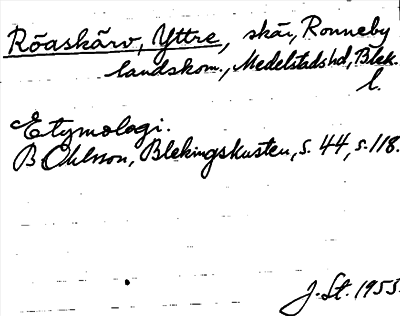 Röaskärv, Yttre, skär, Ronneby
landskom., Medelstads hd, Blek.
l.
Etymologi.
B Ohlsson, Blekingskusten, s. 44, s. 118.
J. St. 1955.